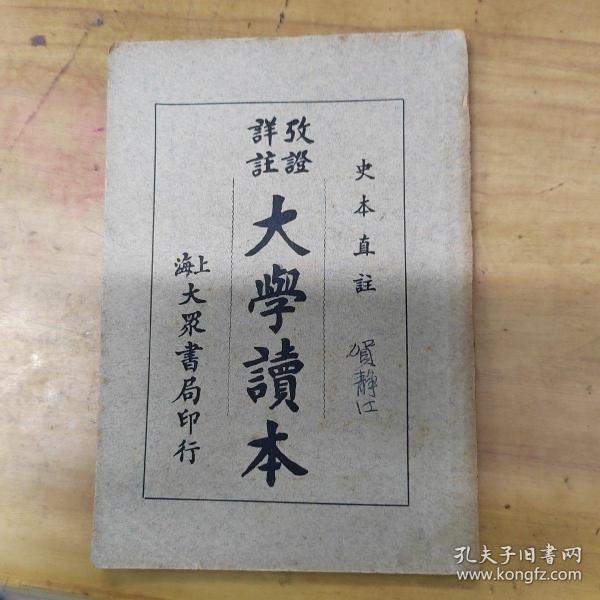 史本直註
賀靜江
攷證
詳註
大學讀本
上海
大眾書局印行
孔夫子旧书网
www.kongfz.com